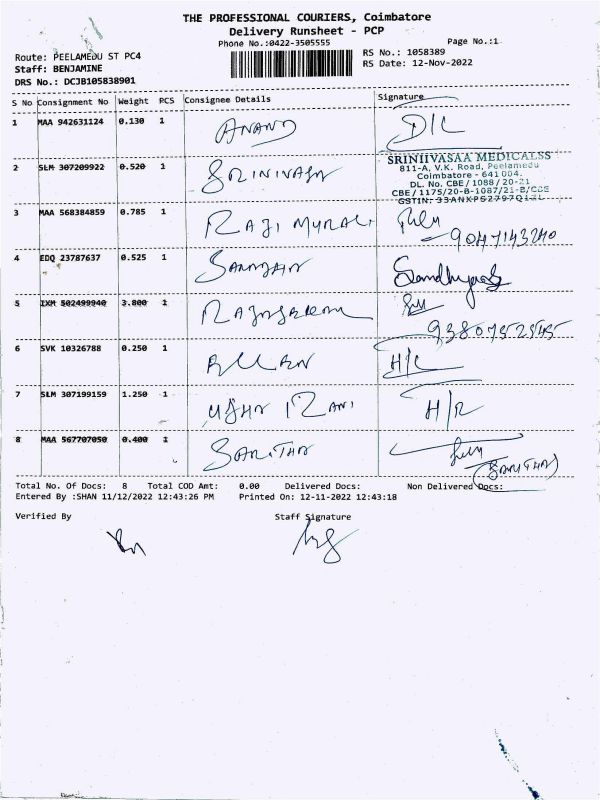 THE PROFESSIONAL COURIERS, Coimbatore
Delivery Runsheet - PCP
Phone No.:0422-3505555
Page No.:1
Route: PEELAMEDU ST PC4
RS No.: 1058389
Staff: BENJAMINE
RS Date: 12-Nov-2022
DRS No.: DCJB105838901
S No Consignment No Weight PCS Consignee Details Signature
1 MAA 942631124 0.130 1 ANAND D/L
2 SLM 307209922 0.520 1 SRINIVASA
SRINIIVASAA MEDICALSS
811-A, V.K. Road, Peelamedu
Coimbatore - 641004.
DL. No. CBE / 1088 / 20-21
CBE / 1175/20-B-1087/21-B/CBE
3 MAA 568384859 0.785 1 RAJI MURALI
9047143240
4 EDQ 23787637 0.525 1
5 IXM 502499940 3.800 1
6 SVK 10326788 0.250 1 H/L
7 SLM 307199159 1.250 1 USHA RANI H/R
8 MAA 567707050 0.400 1 SARITHA
(SARITHA)
Total No. Of Docs: 8 Total COD Amt: 0.00 Delivered Docs: Non Delivered Docs:
Entered By :SHAN 11/12/2022 12:43:26 PM Printed On: 12-11-2022 12:43:18
Verified By Staff Signature